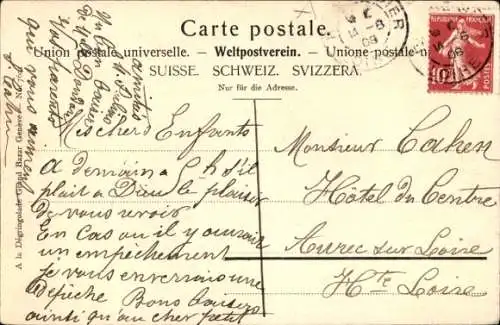 Carte postale.
Union postale universelle. – Weltpostverein. – Unione postale
SUISSE. SCHWEIZ. SVIZZERA.
Nur für die Adresse.
REPUBLIQUE FRANÇAISE
10
POSTES
A la Dégringolade Grand Bazar Genève
Mes chers Enfants
A demain à 4h s'il
plait à Dieu le plaisir
de vous revoir
En cas ou il y aurait
un empêchement
Je vous enverrais une
dépêche Bons baisers
ainsi qu'au cher petit
Monsieur Cahen
Hôtel du Centre
Aurec sur Loire
Hte Loire
amitiés
Bons baisers
qui vous aiment